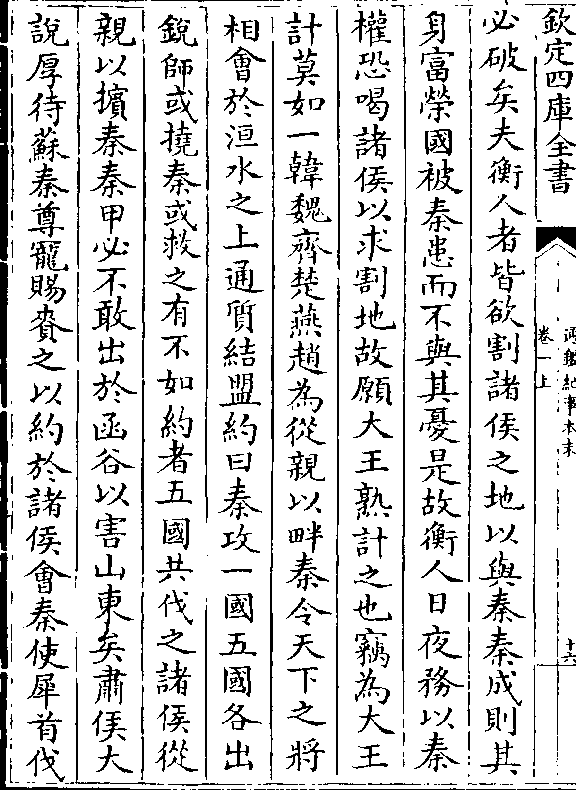 欽定四庫全書
通鑑紀事本末
卷一上
十六
必破矣夫衡人者皆欲割諸侯之地以與秦秦成則其
身富榮國被秦患而不與其憂是故衡人日夜務以秦
權恐喝諸侯以求割地故願大王熟計之也竊為大王
計莫如一韓魏齊楚燕趙為從親以畔秦令天下之將
相會於洹水之上通質結盟約曰秦攻一國五國各出
銳師或撓秦或救之有不如約者五國共伐之諸侯從
親以擯秦秦甲必不敢出於函谷以害山東矣肅侯大
說厚待蘇秦尊寵賜賚之以約於諸侯會秦使犀首伐